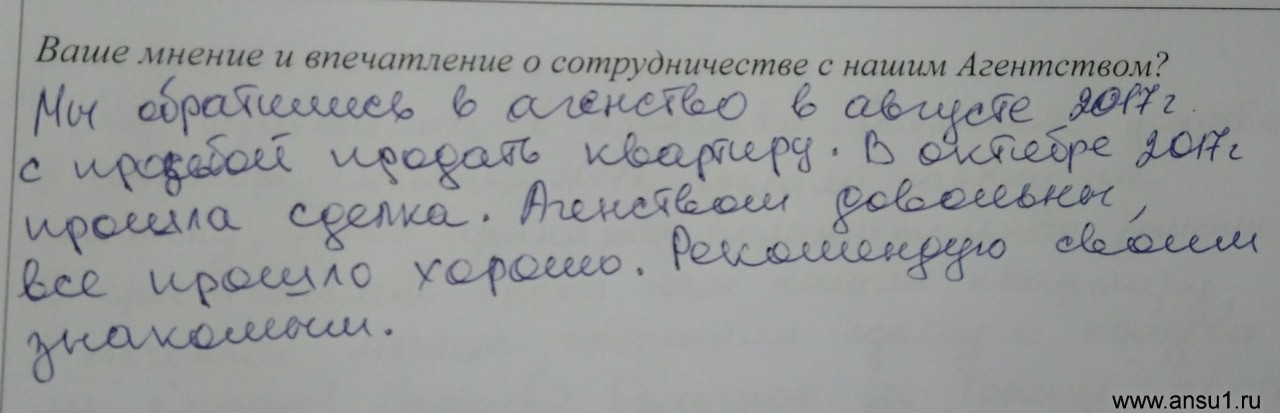 Ваше мнение и впечатление о сотрудничестве с нашим Агентством?
Мы обратились в агенство в августе 2017г.
с прозьбой продать квартиру. В октябре 2017г
прошла сделка. Агенством довольны,
все прошло хорошо. Рекомендую своим
знакомым.
www.ansu1.ru